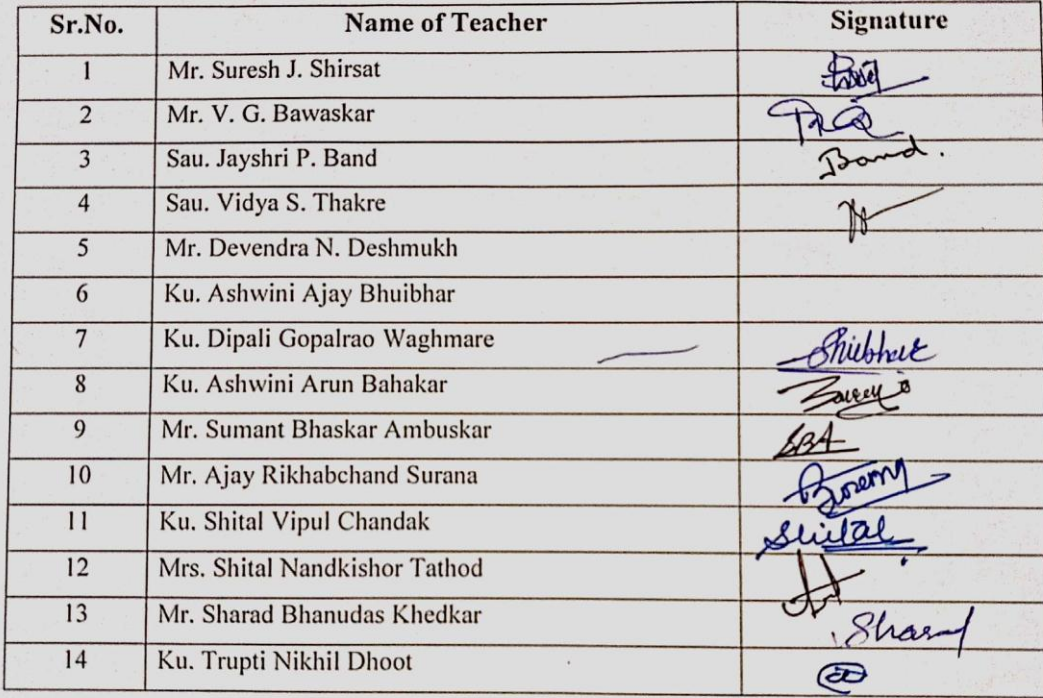 Sr.No. Name of Teacher Signature
1 Mr. Suresh J. Shirsat
2 Mr. V. G. Bawaskar
3 Sau. Jayshri P. Band Band.
4 Sau. Vidya S. Thakre
5 Mr. Devendra N. Deshmukh
6 Ku. Ashwini Ajay Bhuibhar
7 Ku. Dipali Gopalrao Waghmare
8 Ku. Ashwini Arun Bahakar
9 Mr. Sumant Bhaskar Ambuskar SBA
10 Mr. Ajay Rikhabchand Surana
11 Ku. Shital Vipul Chandak Shital
12 Mrs. Shital Nandkishor Tathod
13 Mr. Sharad Bhanudas Khedkar Sharad
14 Ku. Trupti Nikhil Dhoot